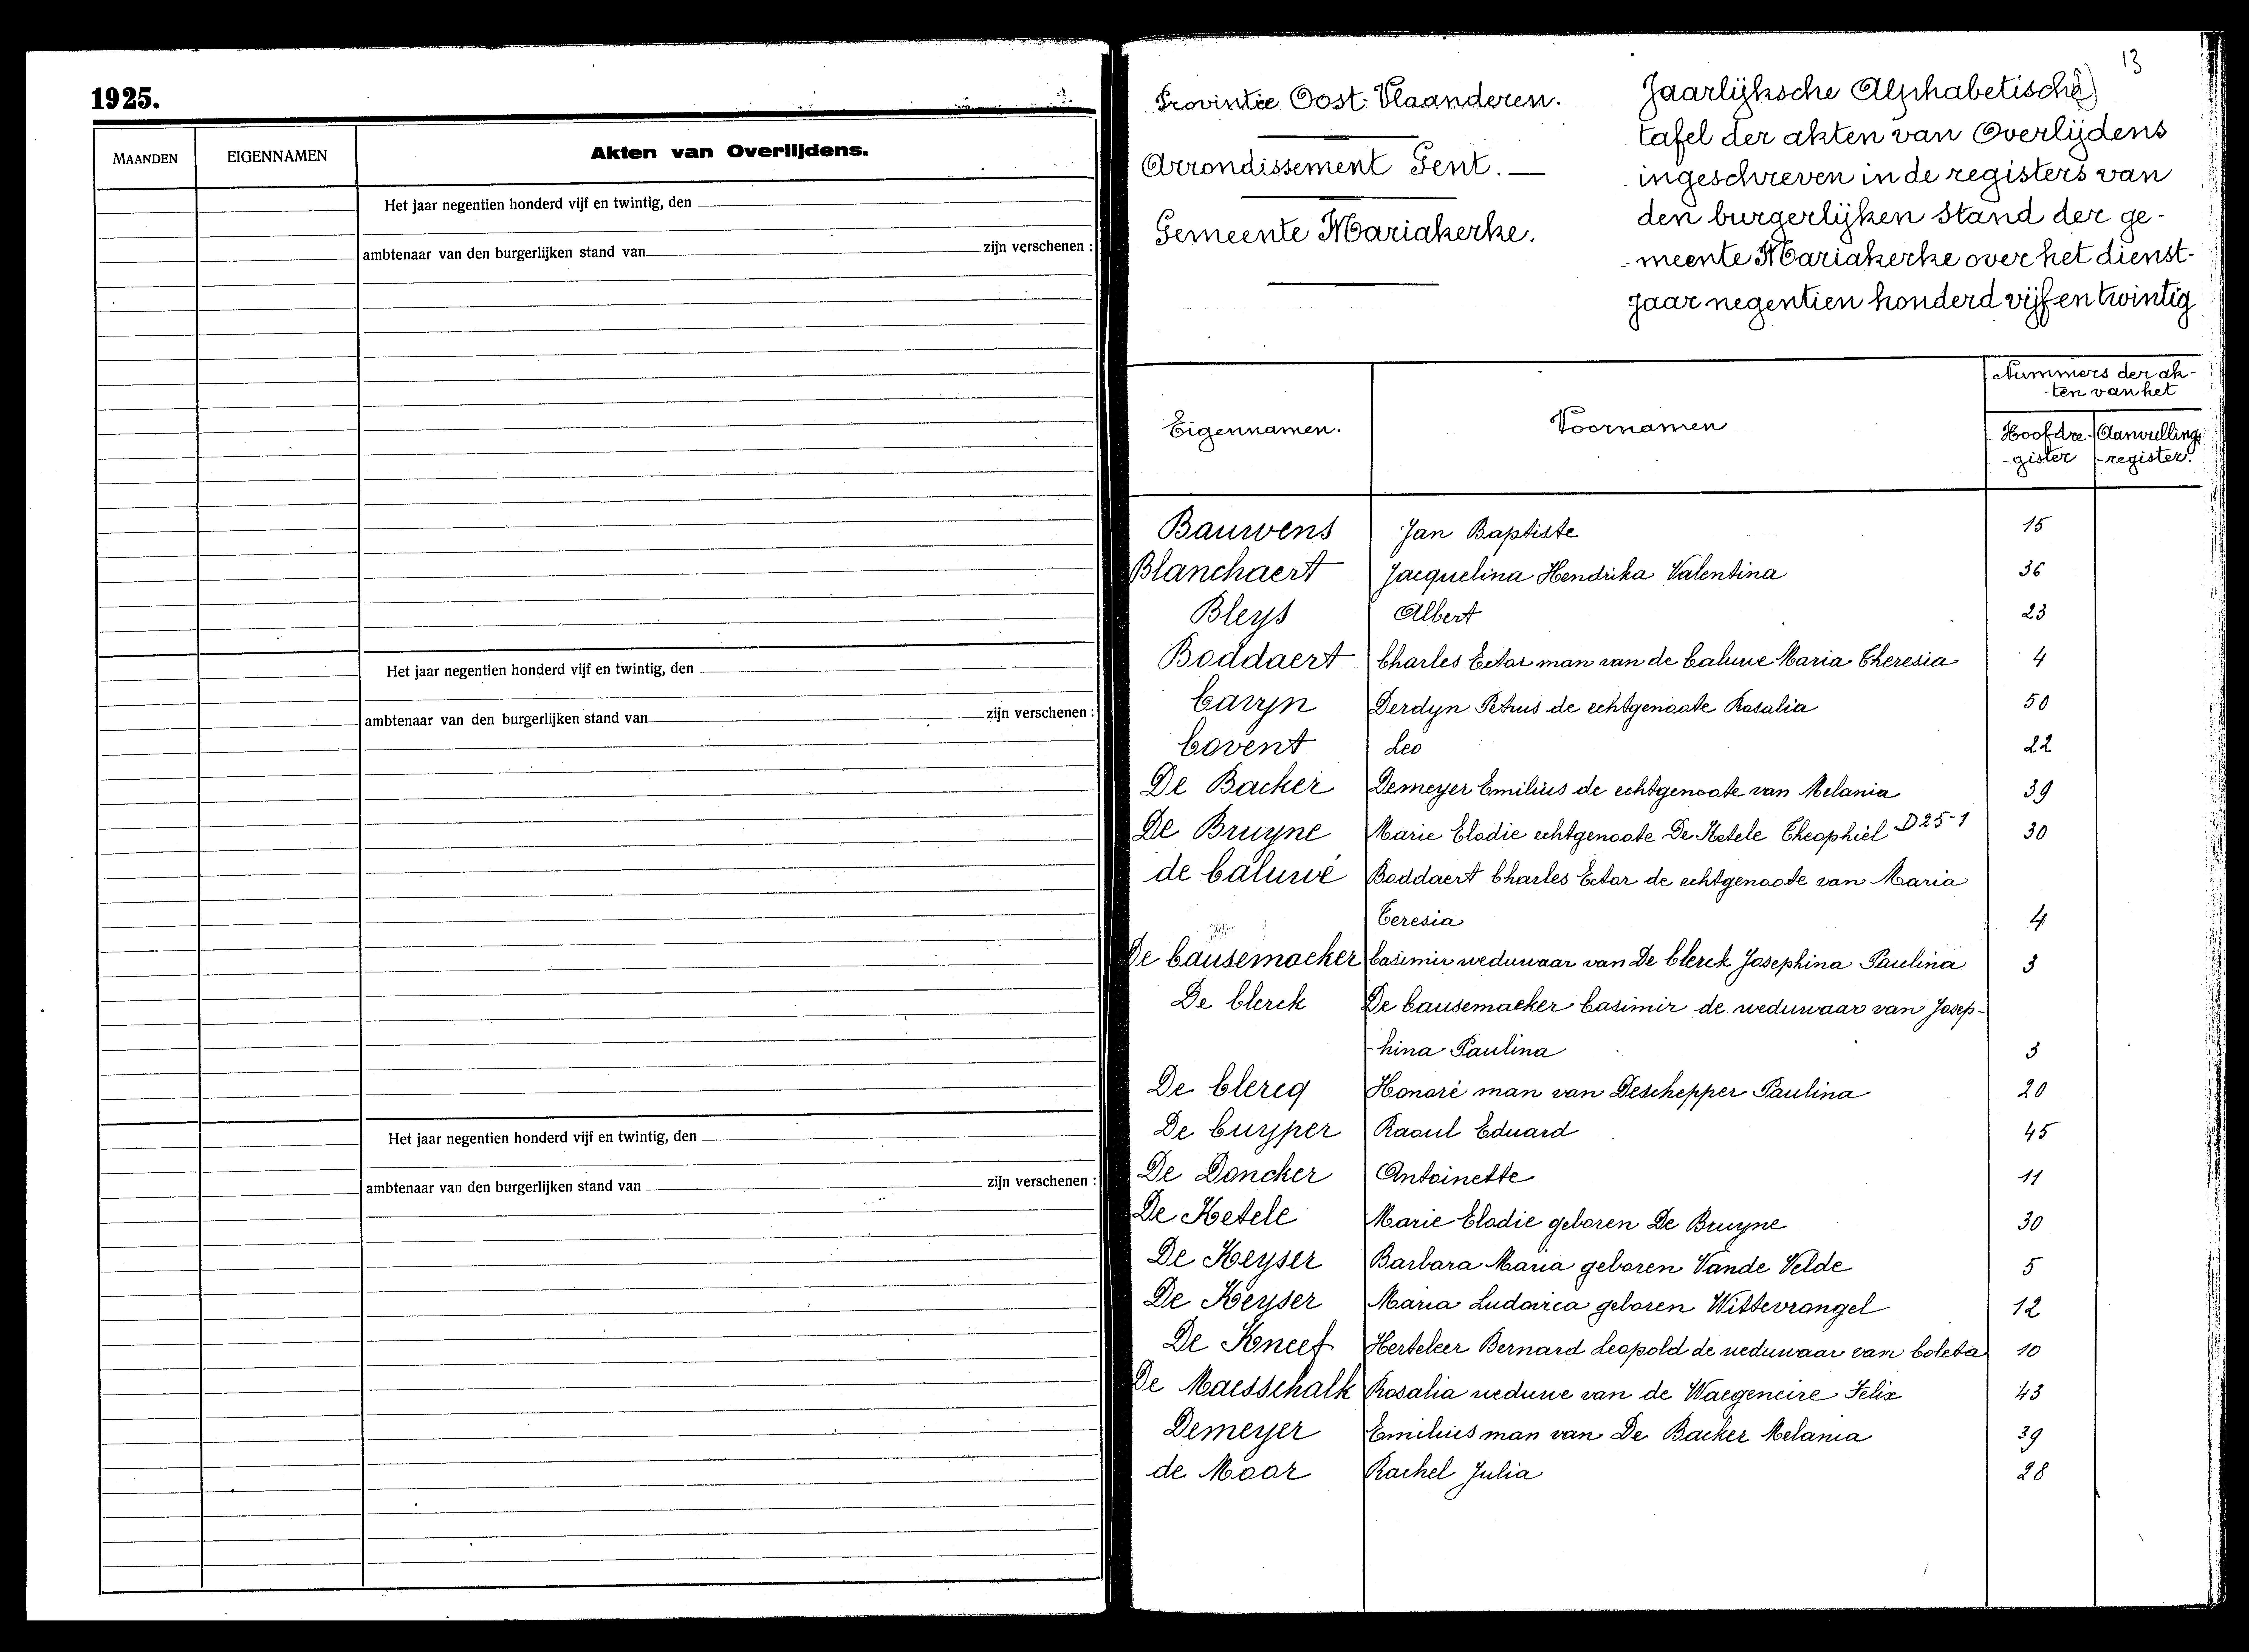 1925.
MAANDEN EIGENNAMEN Akten van Overlijdens.
Het jaar negentien honderd vijf en twintig, den
ambtenaar van den burgerlijken stand van zijn verschenen :
Het jaar negentien honderd vijf en twintig, den
ambtenaar van den burgerlijken stand van zijn verschenen :
Het jaar negentien honderd vijf en twintig, den
ambtenaar van den burgerlijken stand van zijn verschenen :
13
Provintie Oost-Vlaanderen.
Arrondissement Gent.
Gemeente Mariakerke.
Jaarlijksche Alphabetische
tafel der akten van Overlijdens
ingeschreven in de registers van
den burgerlijken stand der ge-
-meente Mariakerke over het dienst-
jaar negentien honderd vijf en twintig
Eigennamen. Voornamen
Nummers der ak-
-ten van het
Hoofdre- Aanvullings
-gister -register.
Bauwens Jan Baptiste 15
Blanchaert Jacquelina Hendrika Valentina 36
Bleys Albert 23
Boddaert Charles Ector man van de Caluwe Maria Theresia 4
Caryn Derdyn Petrus de echtgenoote Rosalia 50
Covent Leo 22
De Backer Demeyer Emilius de echtgenoote van Melania 39
De Bruyne Marie Elodie echtgenoote De Ketele Theophiel D25-1 30
de Caluwé Boddaert Charles Ector de echtgenoote van Maria
Teresia 4
De Causemaeker Casimir weduwaar van De Clerck Josephina Paulina 3
De Clerck De Causemaeker Casimir de weduwaar van Josep-
-hina Paulina 3
De Clercq Honoré man van Deschepper Paulina 20
De Cuyper Raoul Eduard 45
De Doncker Antoinette 11
De Ketele Marie Elodie geboren De Bruyne 30
De Keyser Barbara Maria geboren Vande Velde 5
De Keyser Maria Ludovica geboren Wittevrongel 12
De Kneef Herteleer Bernard Leopold de weduwaar van Coleta 10
De Maesschalk Rosalia weduwe van de Waegeneire Felix 43
Demeyer Emilius man van De Backer Melania 39
de Moor Rachel Julia 28